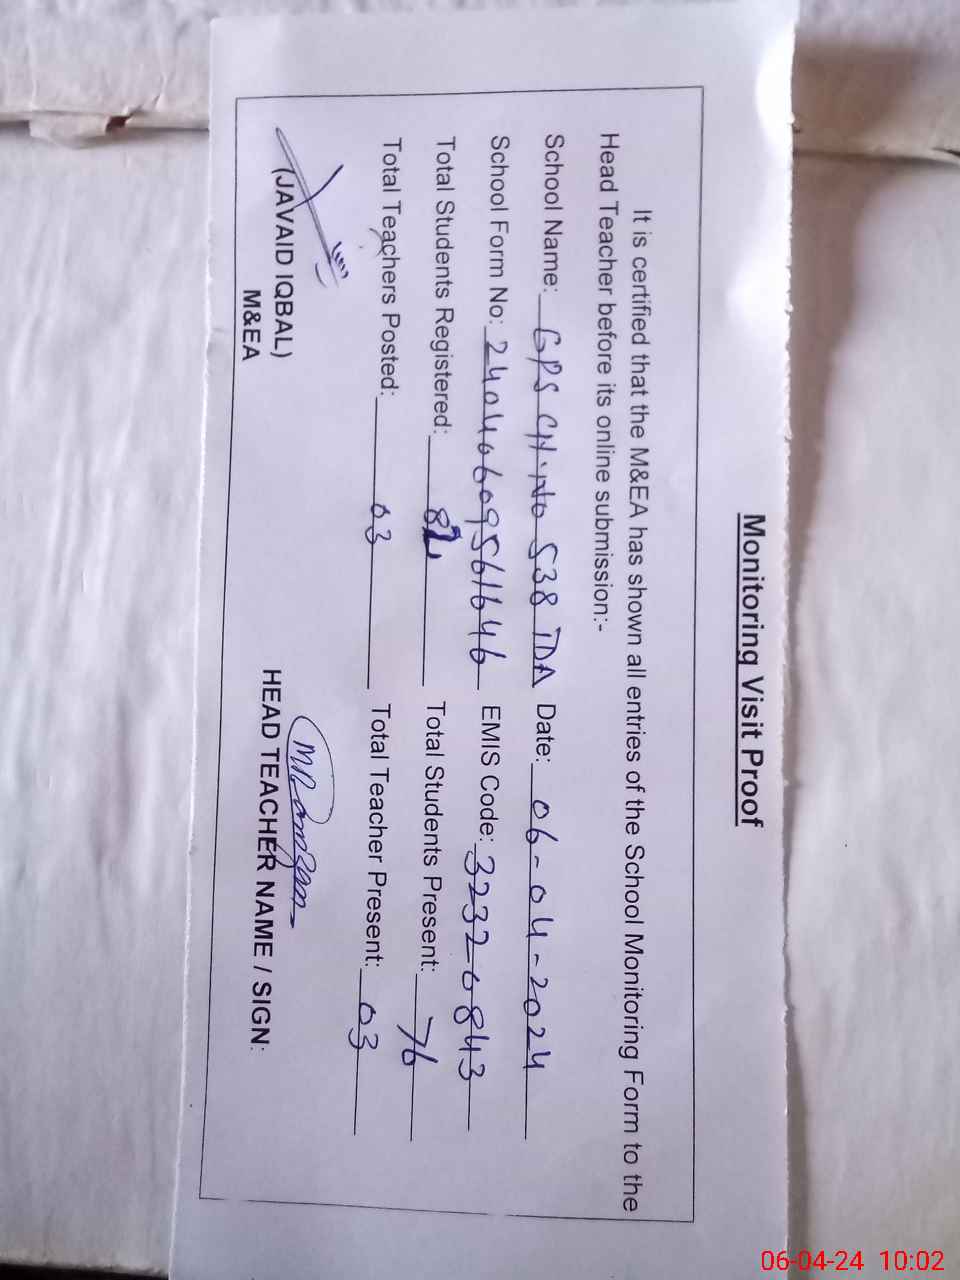 Monitoring Visit Proof
It is certified that the M&EA has shown all entries of the School Monitoring Form to the
Head Teacher before its online submission:-
School Name: GPS CH:No 538 TDA Date: 06-04-2024
School Form No: 24040609561646 EMIS Code: 32320843
Total Students Registered: 82 Total Students Present: 76
Total Teachers Posted: 03 Total Teacher Present: 03
(JAVAID IQBAL)
M&EA
HEAD TEACHER NAME / SIGN:
06-04-24 10:02